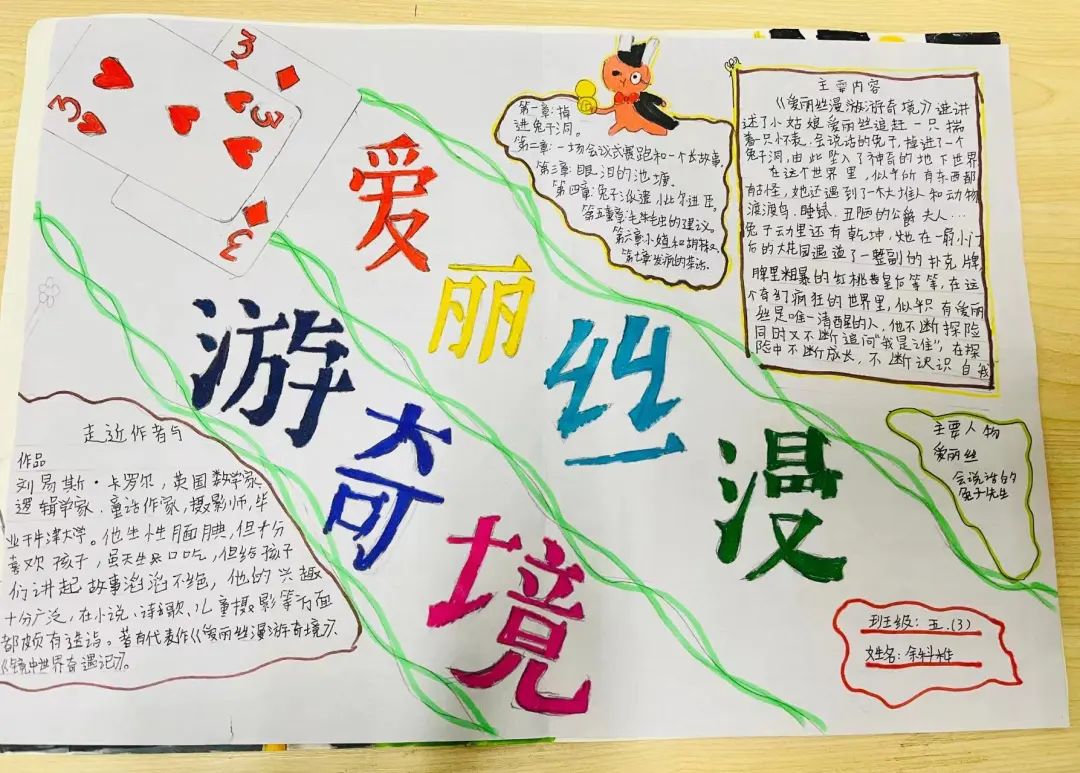 3
3
3
3
爱丽丝漫
游奇境
第一章:掉
进兔子洞。
第二章:一场会议式赛跑和一个长故事,
第三章:眼泪的池塘。
第四章:兔子派遣小比尔进屋。
第五章毛毛虫的建议。
第六章小姐和胡椒。
第七章发疯的茶话。
主要内容
《爱丽丝漫游游奇境》进讲
述了小姑娘爱丽丝追赶一只揣
着只怀表、会说话的兔子,掉进了一个
兔子洞,由此坠入了神奇的地下世界
在这个世界里,似乎所有东西都
有古怪,她还遇到了一大堆人和动物
渡渡鸟、睡鼠、丑陋的公爵夫人…
兔子云动里还有乾坤,她在一扇小门
后的大花园遇遒了一整副的扑克牌
脾里粗暴的红桃皇后等等,在这
个奇幻疯狂的世界里,似乎只有爱丽
丝是唯一清醒的人,他不断探险
同时又不断追问“我是谁”,在探
险中不断成长,不断认识自我
主要人物
爱丽丝
会说话的
兔子先生
走近作者与
作品
刘易斯·卡罗尔,英国数学家、
逻辑学家、童话作家、摄影师,毕
业于牛津大学。他生性腼腆,但十分
喜欢孩子,虽天生口吃,但给孩子
们讲起故事滔滔不绝,他的兴趣
十分广泛,在小说、诗歌、儿童摄影等方面
都颇有造诣。著有代表作《爱丽丝漫游奇境》、
《镜中世界奇遇记》。
班级:五.(3)
姓名:余科桦